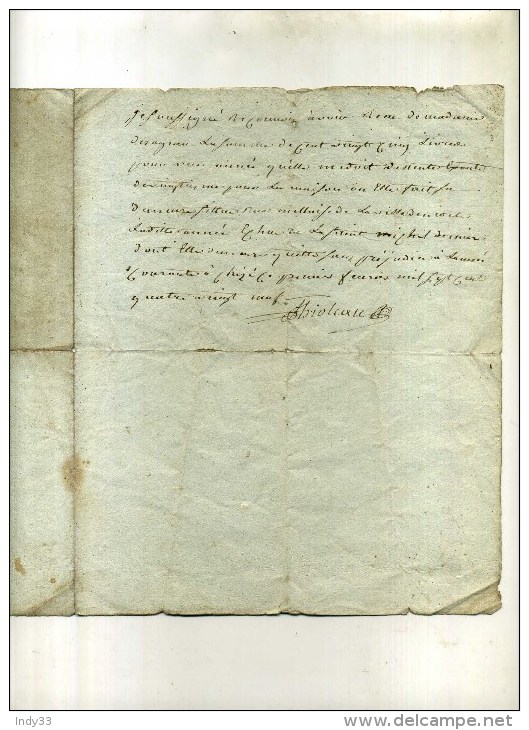 Je soussigné Reconnois avoir Recu de madame
desagrau La somme de Cent vingt Cinq Livres
pour une année quelle me doit de Rente
pour La maison ou Elle fait sa
demeure Rue de La ville de
Laditte année Echue de La Saint michel dernier
dont Elle demeure quitte sans prejudice a Lannée
Courante à le premier feuvrier mil sept Cent
quatre vingt neuf
Indy33
www.delcampe.net